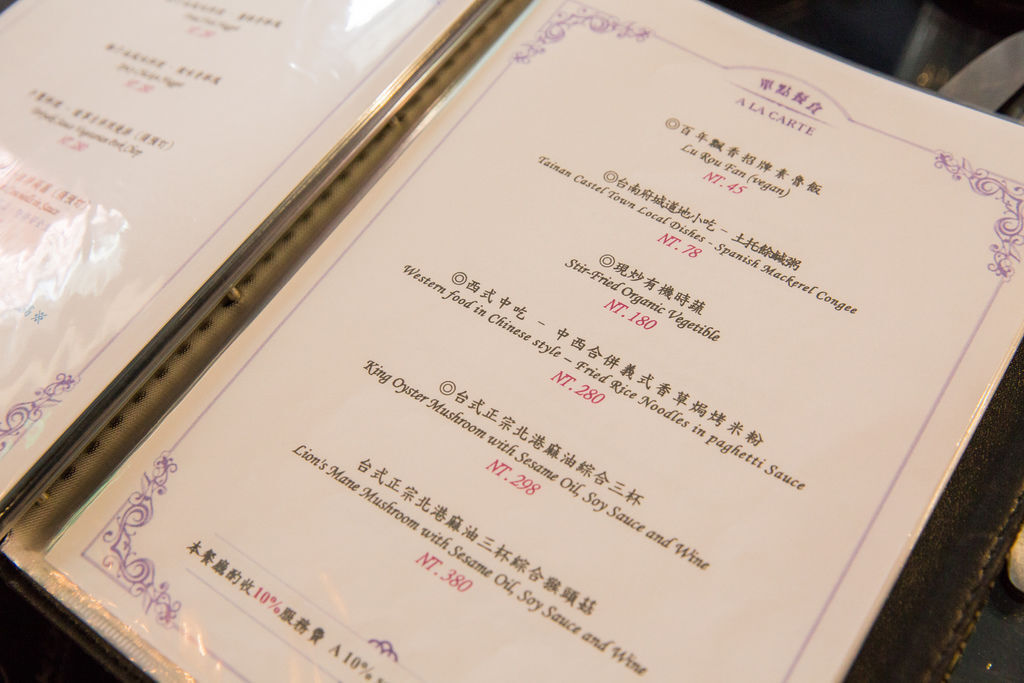 單點餐食
A LA CARTE
◎百年飄香招牌素魯飯
Lu Rou Fan (vegan)
NT. 45
◎台南府城道地小吃 – 土托魠鹹粥
Tainan Castel Town Local Dishes - Spanish Mackerel Congee
NT. 78
◎現炒有機時蔬
Stir-Fried Organic Vegetible
NT. 180
◎西式中吃 – 中西合併義式香草焗烤米粉
Western food in Chinese style – Fried Rice Noodles in paghetti Sauce
NT. 280
◎台式正宗北港麻油綜合三杯
King Oyster Mushroom with Sesame Oil, Soy Sauce and Wine
NT. 298
台式正宗北港麻油三杯綜合猴頭菇
Lion's Mane Mushroom with Sesame Oil, Soy Sauce and Wine
NT. 380
本餐廳酌收10%服務費 A 10%